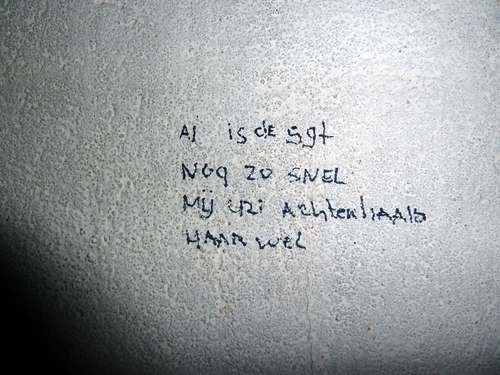 Al is de sgt
NOg zo SNEL
Mij uzi Achterhaald
HAAR WEL